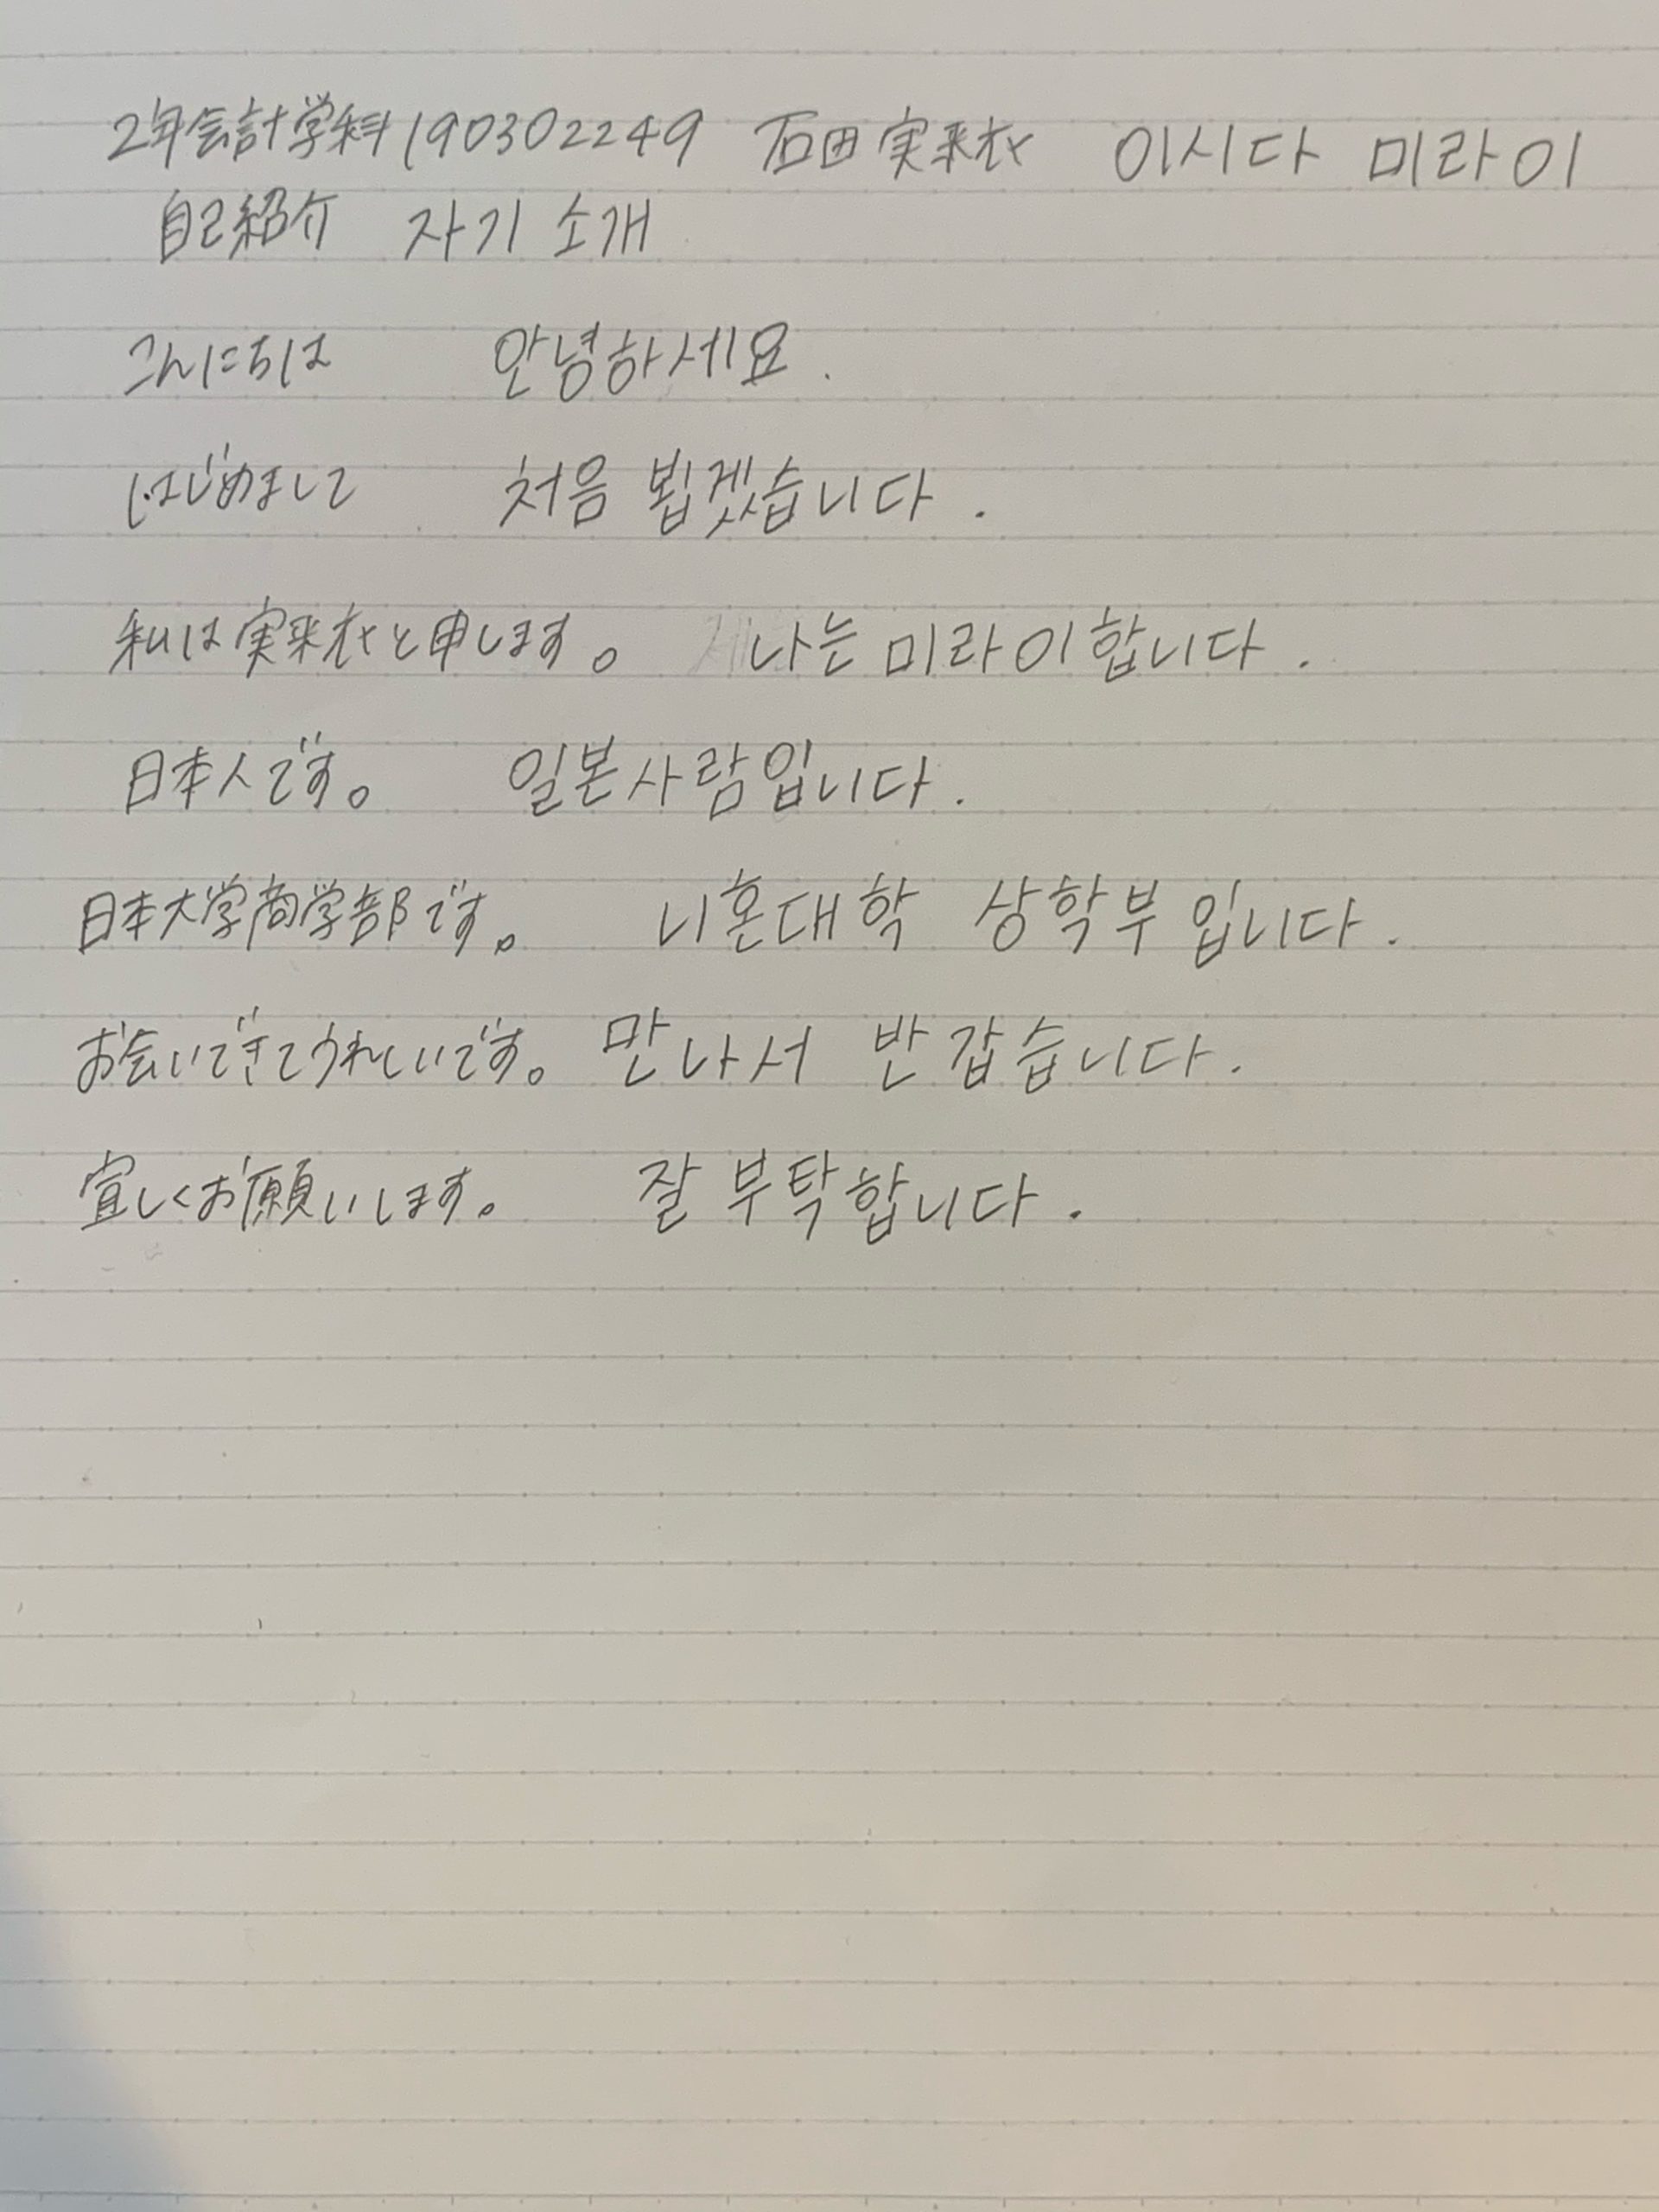 2年会計学科190302249 石田実来衣 이시다 미라이
自己紹介 자기 소개
こんにちは 안녕하세요.
はじめまして 처음 뵙겠습니다.
私は実来衣と申します。 나는 미라이합니다.
日本人です。 일본사람입니다.
日本大学商学部です。 니혼대학 상학부입니다.
お会いできてうれしいです。 만나서 반갑습니다.
宜しくお願いします。 잘 부탁합니다.